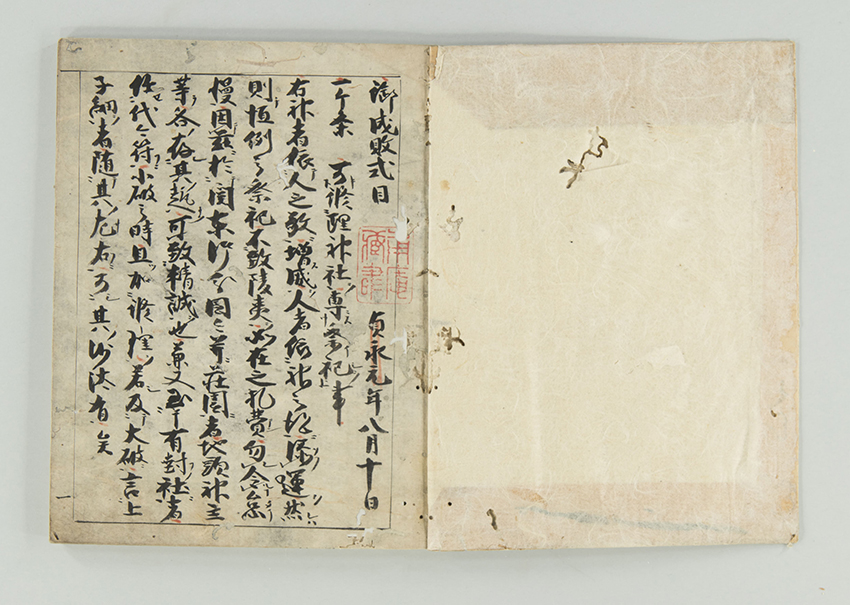 御成敗式目 貞永元年八月十日
一ケ条 可修理神社専祭祀事
右神者依人之敬増威人者依神之徳添運然
則恒例之祭祀不致陵夷如在之礼費勿令怠
慢因茲於関東御分国々并荘園者地頭神主
等各存其趣可致精誠也兼又至于有封社者
任代々符小破之時且加修理若及大破言上
子細者随其左右可其沙汰有矣